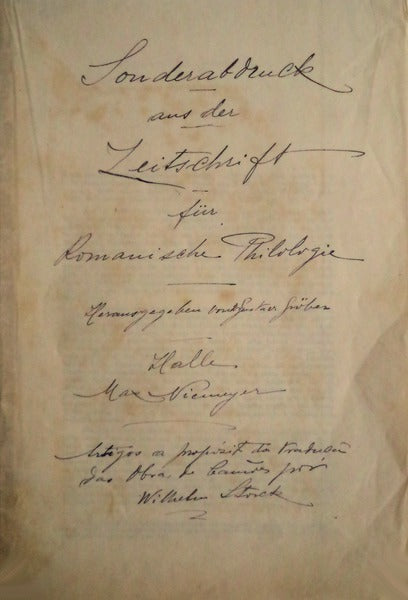 Sonderabdruck
aus der
Zeitschrift
für
Romanische Philologie
Herausgegeben von Gustav Gröber
Halle
Max Niemeyer
Artigos a proposit da traducção
das Obra de Camões por
Wilhelm Storck